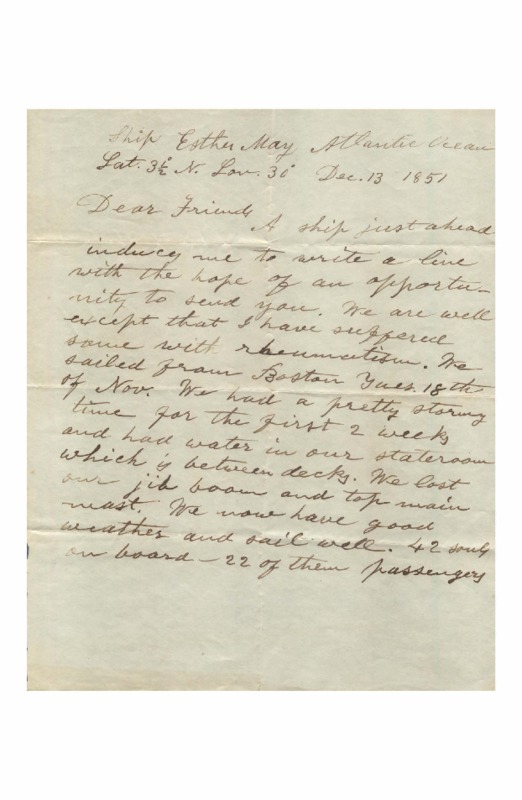 Ship Esther May Atlantic Ocean
Lat. 3½ N. Lon. 30 Dec. 13 1851
Dear Friends
A ship just ahead
induces me to write a line
with the hope of an opportu-
nity to send you. We are well
except that I have suffered
some with rheumatism. We
sailed from Boston Tues. 18th
of Nov. We had a pretty stormy
time for the first 2 weeks
and had water in our stateroom
which is between decks. We lost
our jib boom and top main
mast. We now have good
weather and sail well. 42 souls
on board - 22 of them passengers